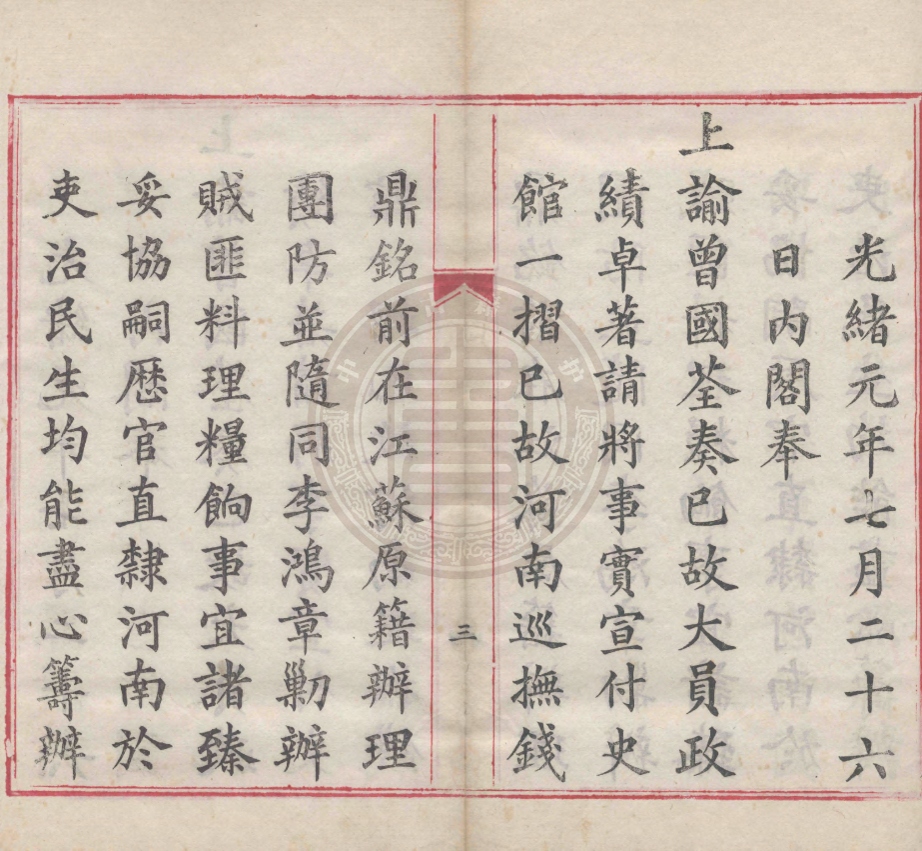 光緒元年七月二十六
日内閣奉
上諭曾國荃奏已故大員政
績卓著請將事實宣付史
館一摺已故河南巡撫錢
三
鼎銘前在江蘇原籍辦理
團防並隨同李鴻章勦辦
賊匪料理糧餉事宜諸臻
妥協嗣歷官直隸河南於
吏治民生均能盡心籌辦